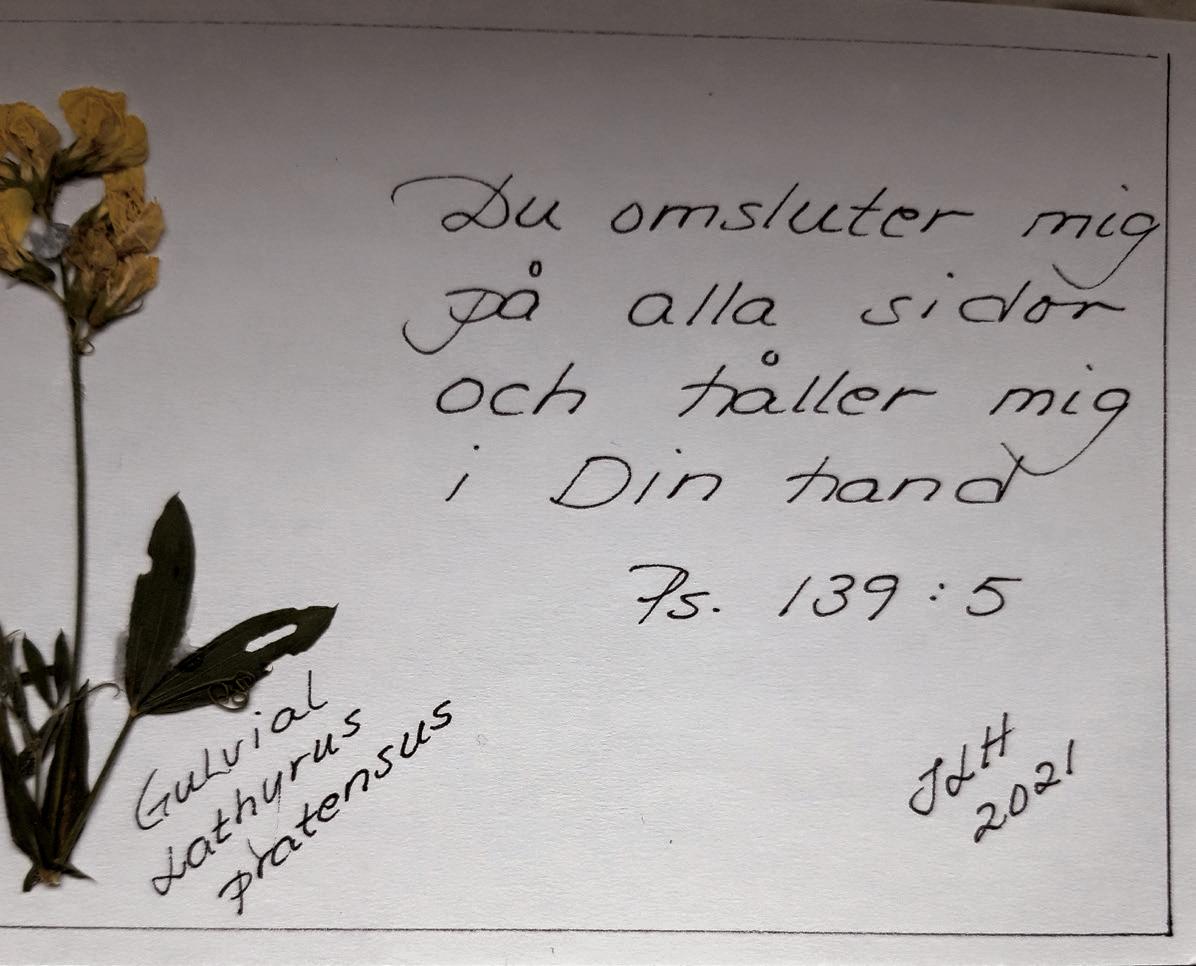 Du omsluter mig
på alla sidor
och håller mig
i Din hand
Ps. 139:5
Gulvial
Lathyrus
pratensus
JLH
2021